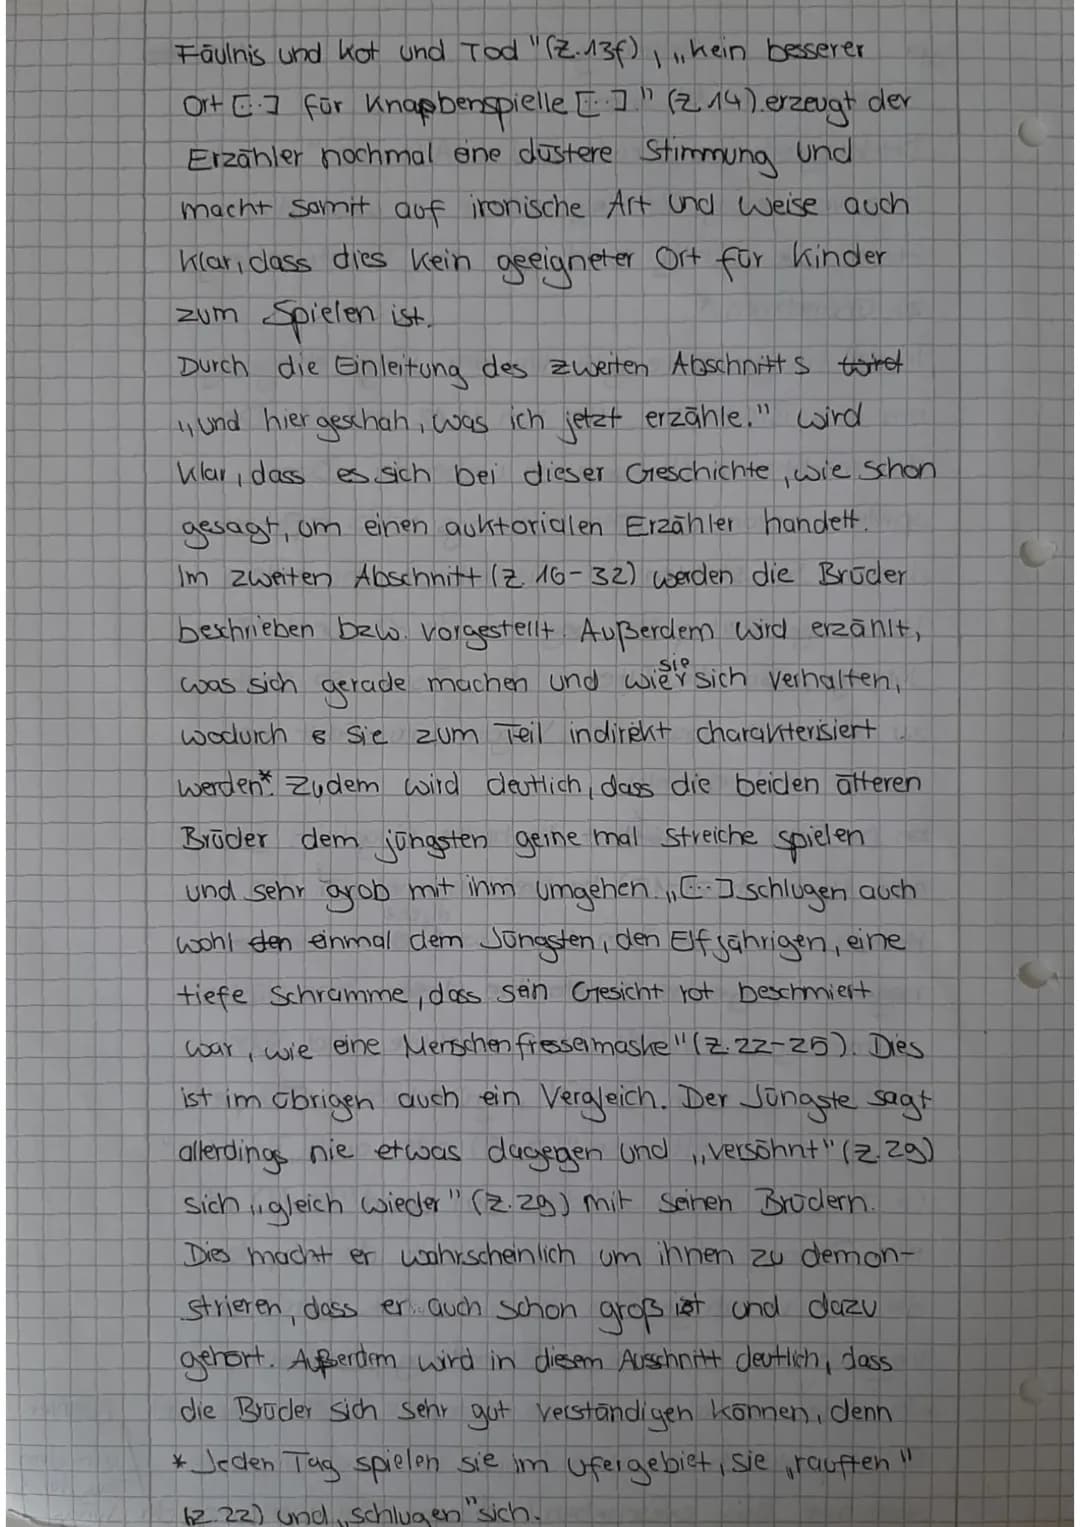 Fäulnis und Kot und Tod"(Z.13f), „kein besserer
Ort [...] für Knappbenspielle [...]" (Z.14).erzeugt der
Erzähler nochmal eine düstere Stimmung und
macht somit auf ironische Art und Weise auch
klar, dass dies kein geeigneter Ort für Kinder
zum Spielen ist.
Durch die Einleitung des zweiten Abschnitts wird
„und hier geschah, was ich jetzt erzähle." wird
klar, dass es sich bei dieser Geschichte, wie schon
gesagt, um einen auktorialen Erzähler handelt.
Im zweiten Abschnitt (Z. 16-32) werden die Brüder
beschrieben bzw. vorgestellt. Außerdem wird erzählt,
was sich gerade machen und wie sie sich verhalten,
wodurch sie zum Teil indirekt charakterisiert
werden.* Zudem wird deutlich, dass die beiden älteren
Brüder dem jüngsten gerne mal Streiche spielen
und sehr grob mit ihm umgehen. „[...] schlugen auch
wohl den einmal dem Jüngsten, den Elfjährigen, eine
tiefe Schramme, dass sein Gesicht rot beschmiert
war, wie eine Menschenfressermaske" (Z.22-25). Dies
ist im übrigen auch ein Vergleich. Der Jüngste sagt
allerdings nie etwas dagegen und „versöhnt" (Z.29)
sich „gleich wieder" (Z.29) mit seinen Brüdern.
Dies macht er wahrscheinlich um ihnen zu demon-
strieren, dass er auch schon groß ist und dazu
gehört. Außerdem wird in diesem Ausschnitt deutlich, dass
die Brüder sich sehr gut verständigen können, denn
* Jeden Tag spielen sie im Ufergebiet, sie „rauften"
(Z.22) und „schlugen" sich.